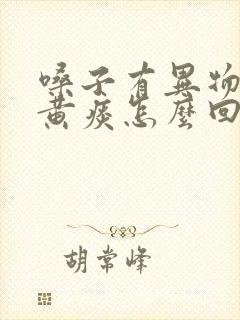 嗓子有異物
黃痰怎麼回
胡常峰